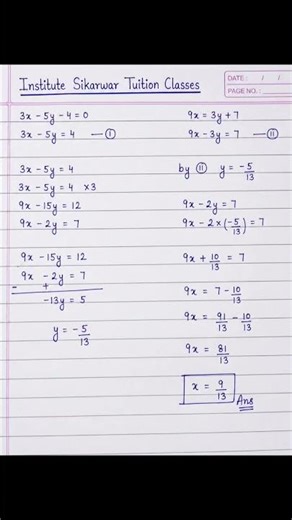 Institute Sikarwar Tuition Classes
DATE : / /
PAGE NO. :
3x - 5y - 4 = 0
3x - 5y = 4 — Ⓘ
3x - 5y = 4
3x - 5y = 4 ×3
9x - 15y = 12
9x - 2y = 7
9x - 15y = 12
9x - 2y = 7
- +
-13y = 5
y = -5/13
9x = 3y + 7
9x - 3y = 7 — Ⓘ Ⓘ
by Ⓘ Ⓘ y = -5/13
9x - 2y = 7
9x - 2 × (-5/13) = 7
9x + 10/13 = 7
9x = 7 - 10/13
9x = 91/13 - 10/13
9x = 81/13
x = 9/13
Ans